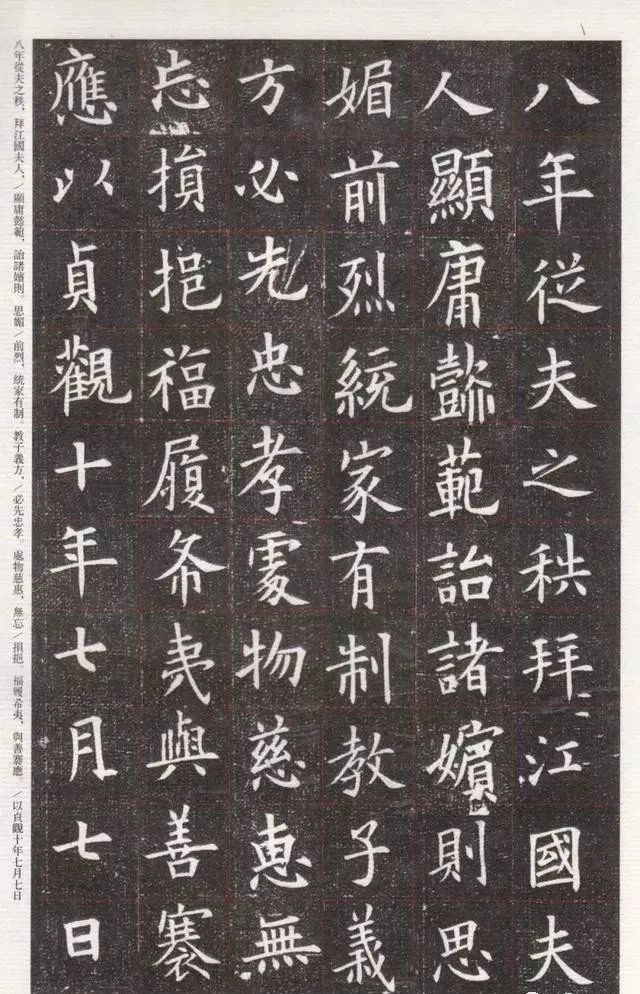 八年從夫之秩拜江國夫
人顯庸懿範詒諸嬪則思
媚前烈統家有制教子義
方必先忠孝處物慈惠無
忘損挹福履希夷與善褰
應以貞觀十年七月七日
八年從夫之秩，拜江國夫人，／顯庸懿範，詒諸嬪則。思媚／前烈，統家有制。教子義方，／必先忠孝。處物慈惠，無忘／損挹。福履希夷，與善褰應。／以貞觀十年七月七日